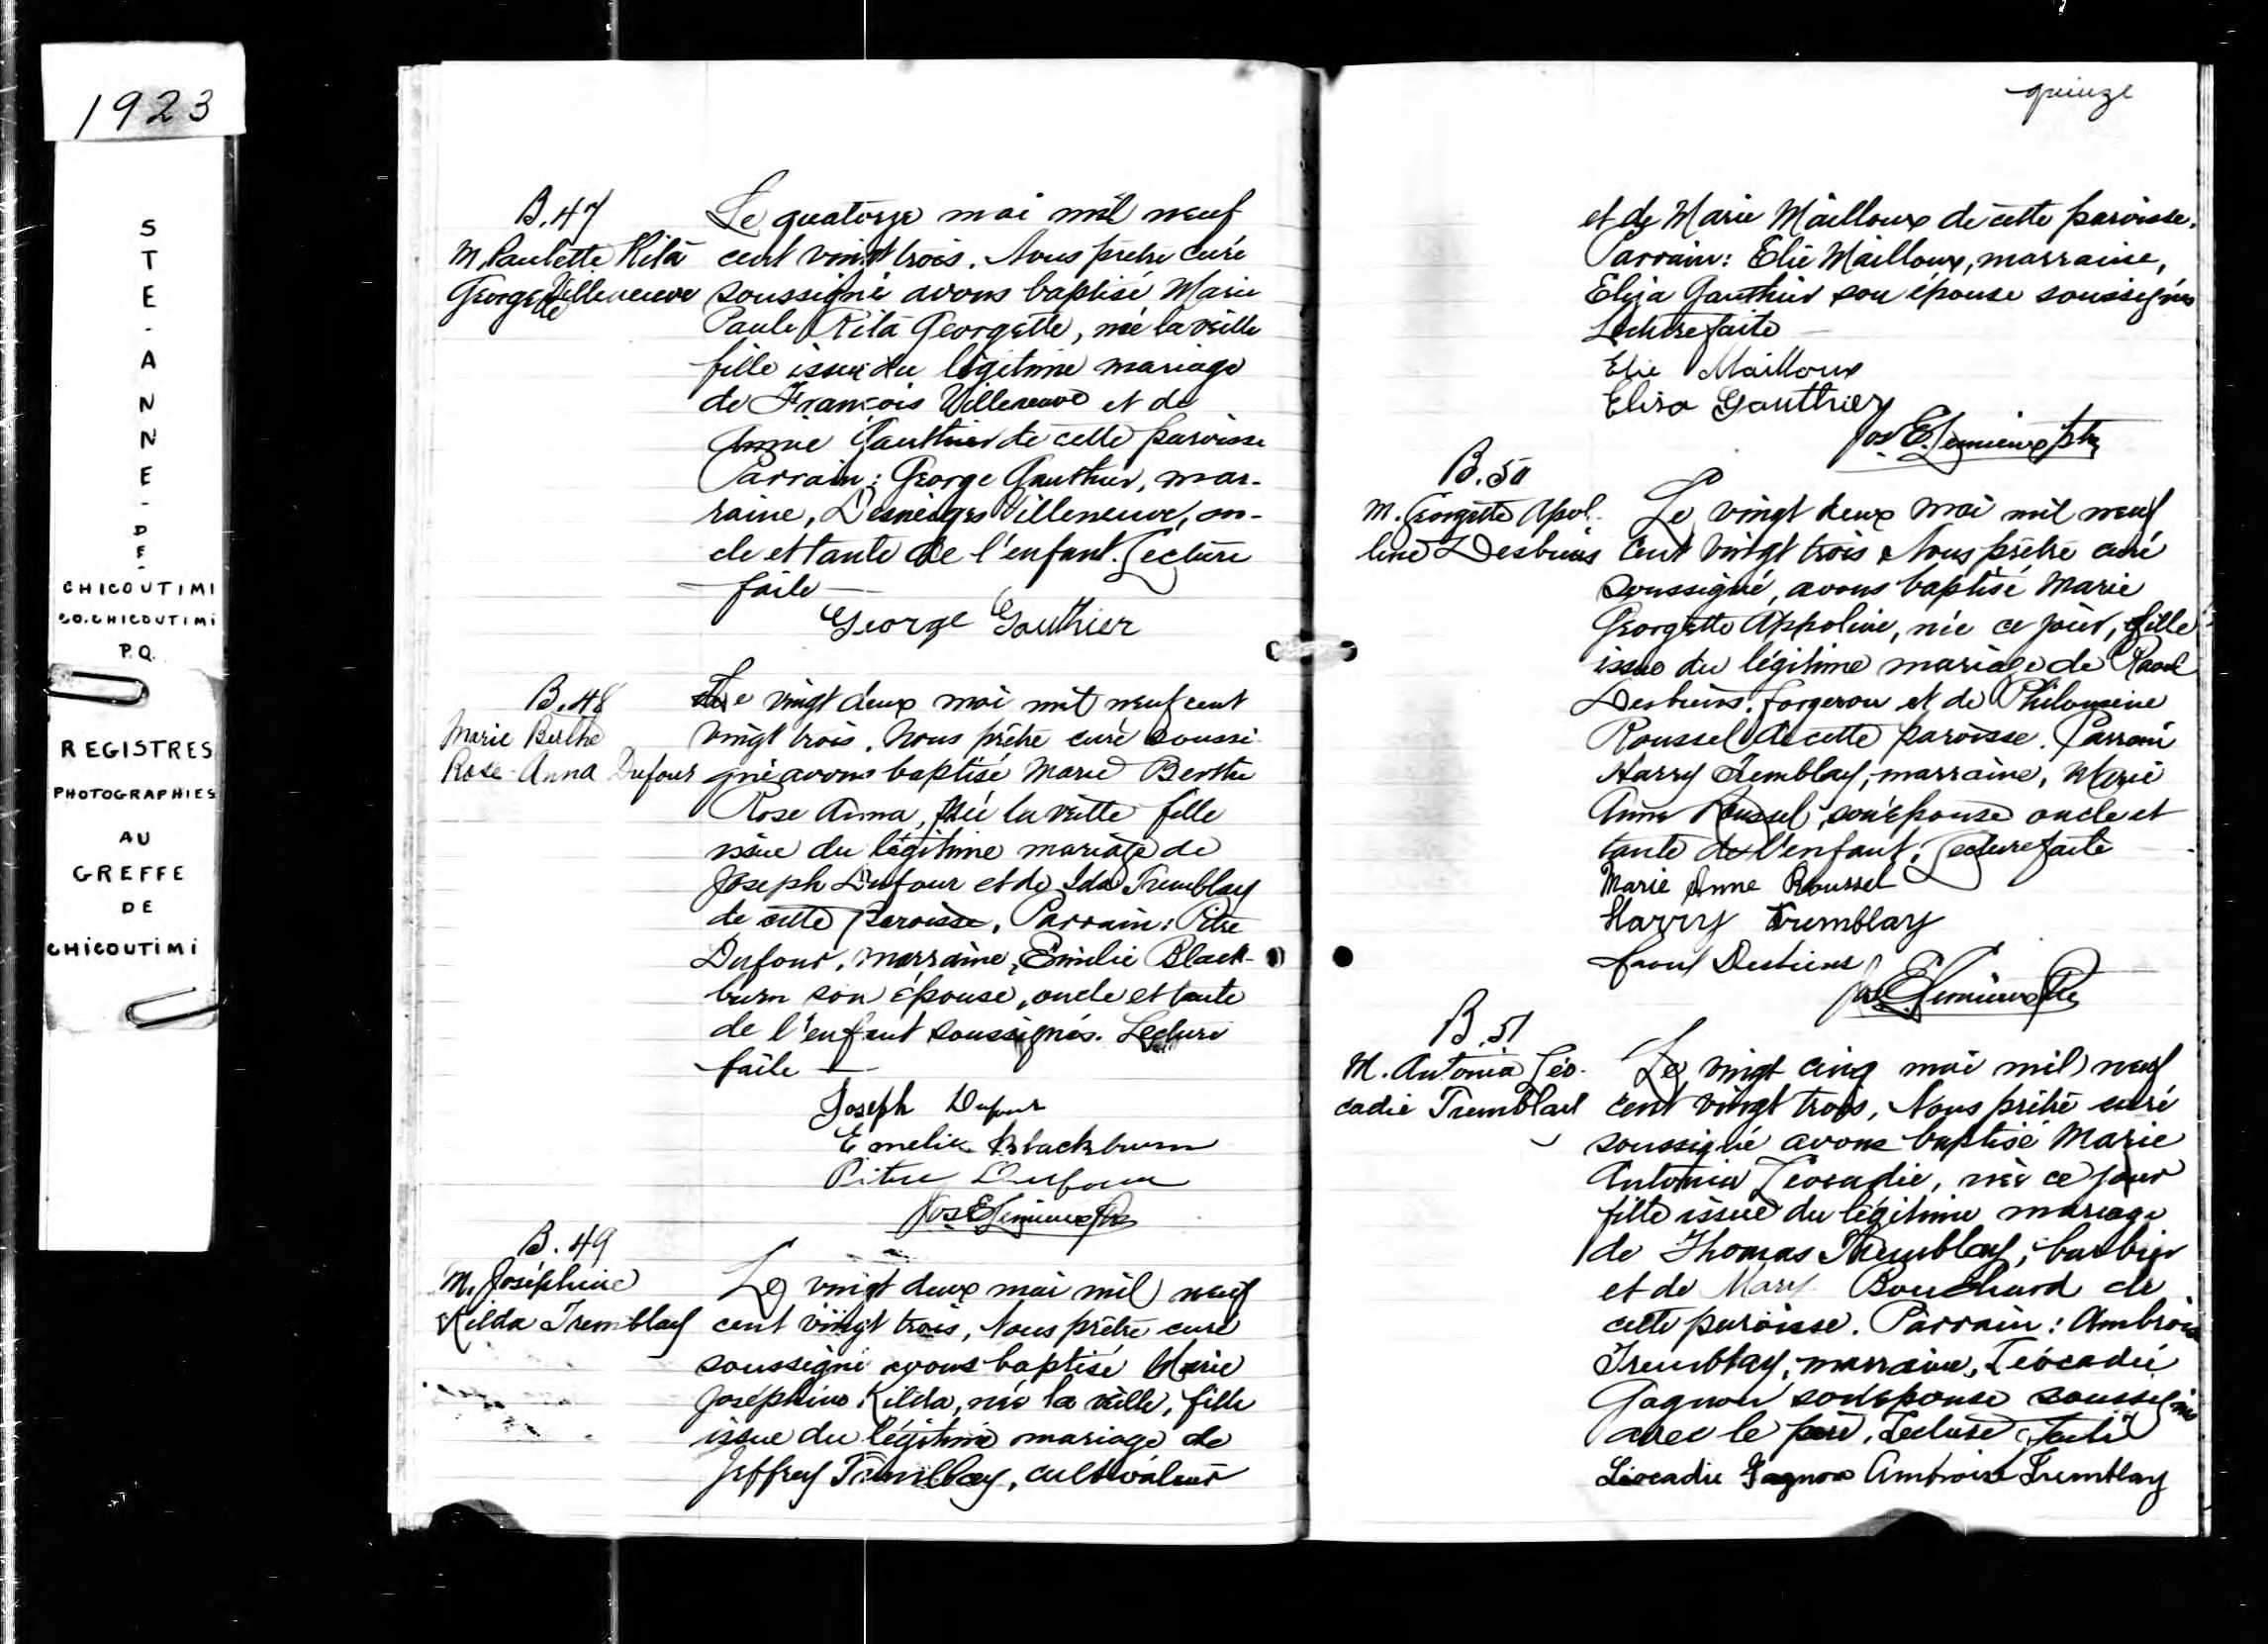 1923
STE-ANNE-DE-
CHICOUTIMI
CO. CHICOUTIMI
P.Q.
REGISTRES
PHOTOGRAPHIES
AU
GREFFE
DE
CHICOUTIMI
B.47
M. Paulette Rita
Georgette Villeneuve
Le quatorze mai mil neuf
cent vingt trois. Nous prêtre curé
soussigné avons baptisé Marie
Paule Rita Georgette, née la veille
fille issue du légitime mariage
de François Villeneuve et de
Annie Gauthier de cette paroisse
Parrain : George Gauthier, mar-
raine, Desneiges Villeneuve, on-
cle et tante de l'enfant. Lecture
faite
George Gauthier
B.48
Marie Berthe
Rose-Anna Dufour
Le vingt deux mai mil neuf cent
vingt trois. Nous prêtre curé soussi-
gné avons baptisé Marie Berthe
Rose Anna, née la veille fille
issue du légitime mariage de
Joseph Dufour et de Ida Tremblay
de cette paroisse. Parrain : Pitre
Dufour, marraine, Emilie Black-
burn son épouse, oncle et tante
de l'enfant soussignés. Lecture
faite
Joseph Dufour
Emelie Blackburn
Pitre Dufour
Jos E Lemieux Ptre
B.49
M. Joséphine
Kilda Tremblay
Le vingt deux mai mil neuf
cent vingt trois, Nous prêtre curé
soussigné avons baptisé Marie
Joséphine Kilda, née la veille, fille
issue du légitime mariage de
Jeffrey Tremblay, cultivateur
quinze
et de Marie Mailloux de cette paroisse.
Parrain : Elie Mailloux, marraine,
Eliza Gauthier son épouse soussignés
Lecture faite
Elie Mailloux
Eliza Gauthier
Jos E. Lemieux Ptre
B.50
M. Georgette Apol-
line Desbiens
Le vingt deux mai mil neuf
cent vingt trois Nous prêtre curé
soussigné, avons baptisé Marie
Georgette Appoline, née ce jour, fille
issue du légitime mariage de Raoul
Desbiens, forgeron et de Philomène
Roussel de cette paroisse. Parrain
Harry Tremblay, marraine, Marie
Anna Roussel, son épouse oncle et
tante de l'enfant. Lecture faite
Marie Anne Roussel
Harry Tremblay
Raoul Desbiens
Jos E Lemieux Ptre
B.51
M. Antonia Léo-
cadie Tremblay
Le vingt cinq mai mil neuf
cent vingt trois, Nous prêtre curé
soussigné avons baptisé Marie
Antonia Léocadie, née ce jour
fille issue du légitime mariage
de Thomas Tremblay, barbier
et de Mary Bouchard de
cette paroisse. Parrain : Ambroise
Tremblay, marraine, Léocadie
Gagnon son épouse soussignés
avec le père, Lecture faite
Léocadie Gagnon Ambroise Tremblay